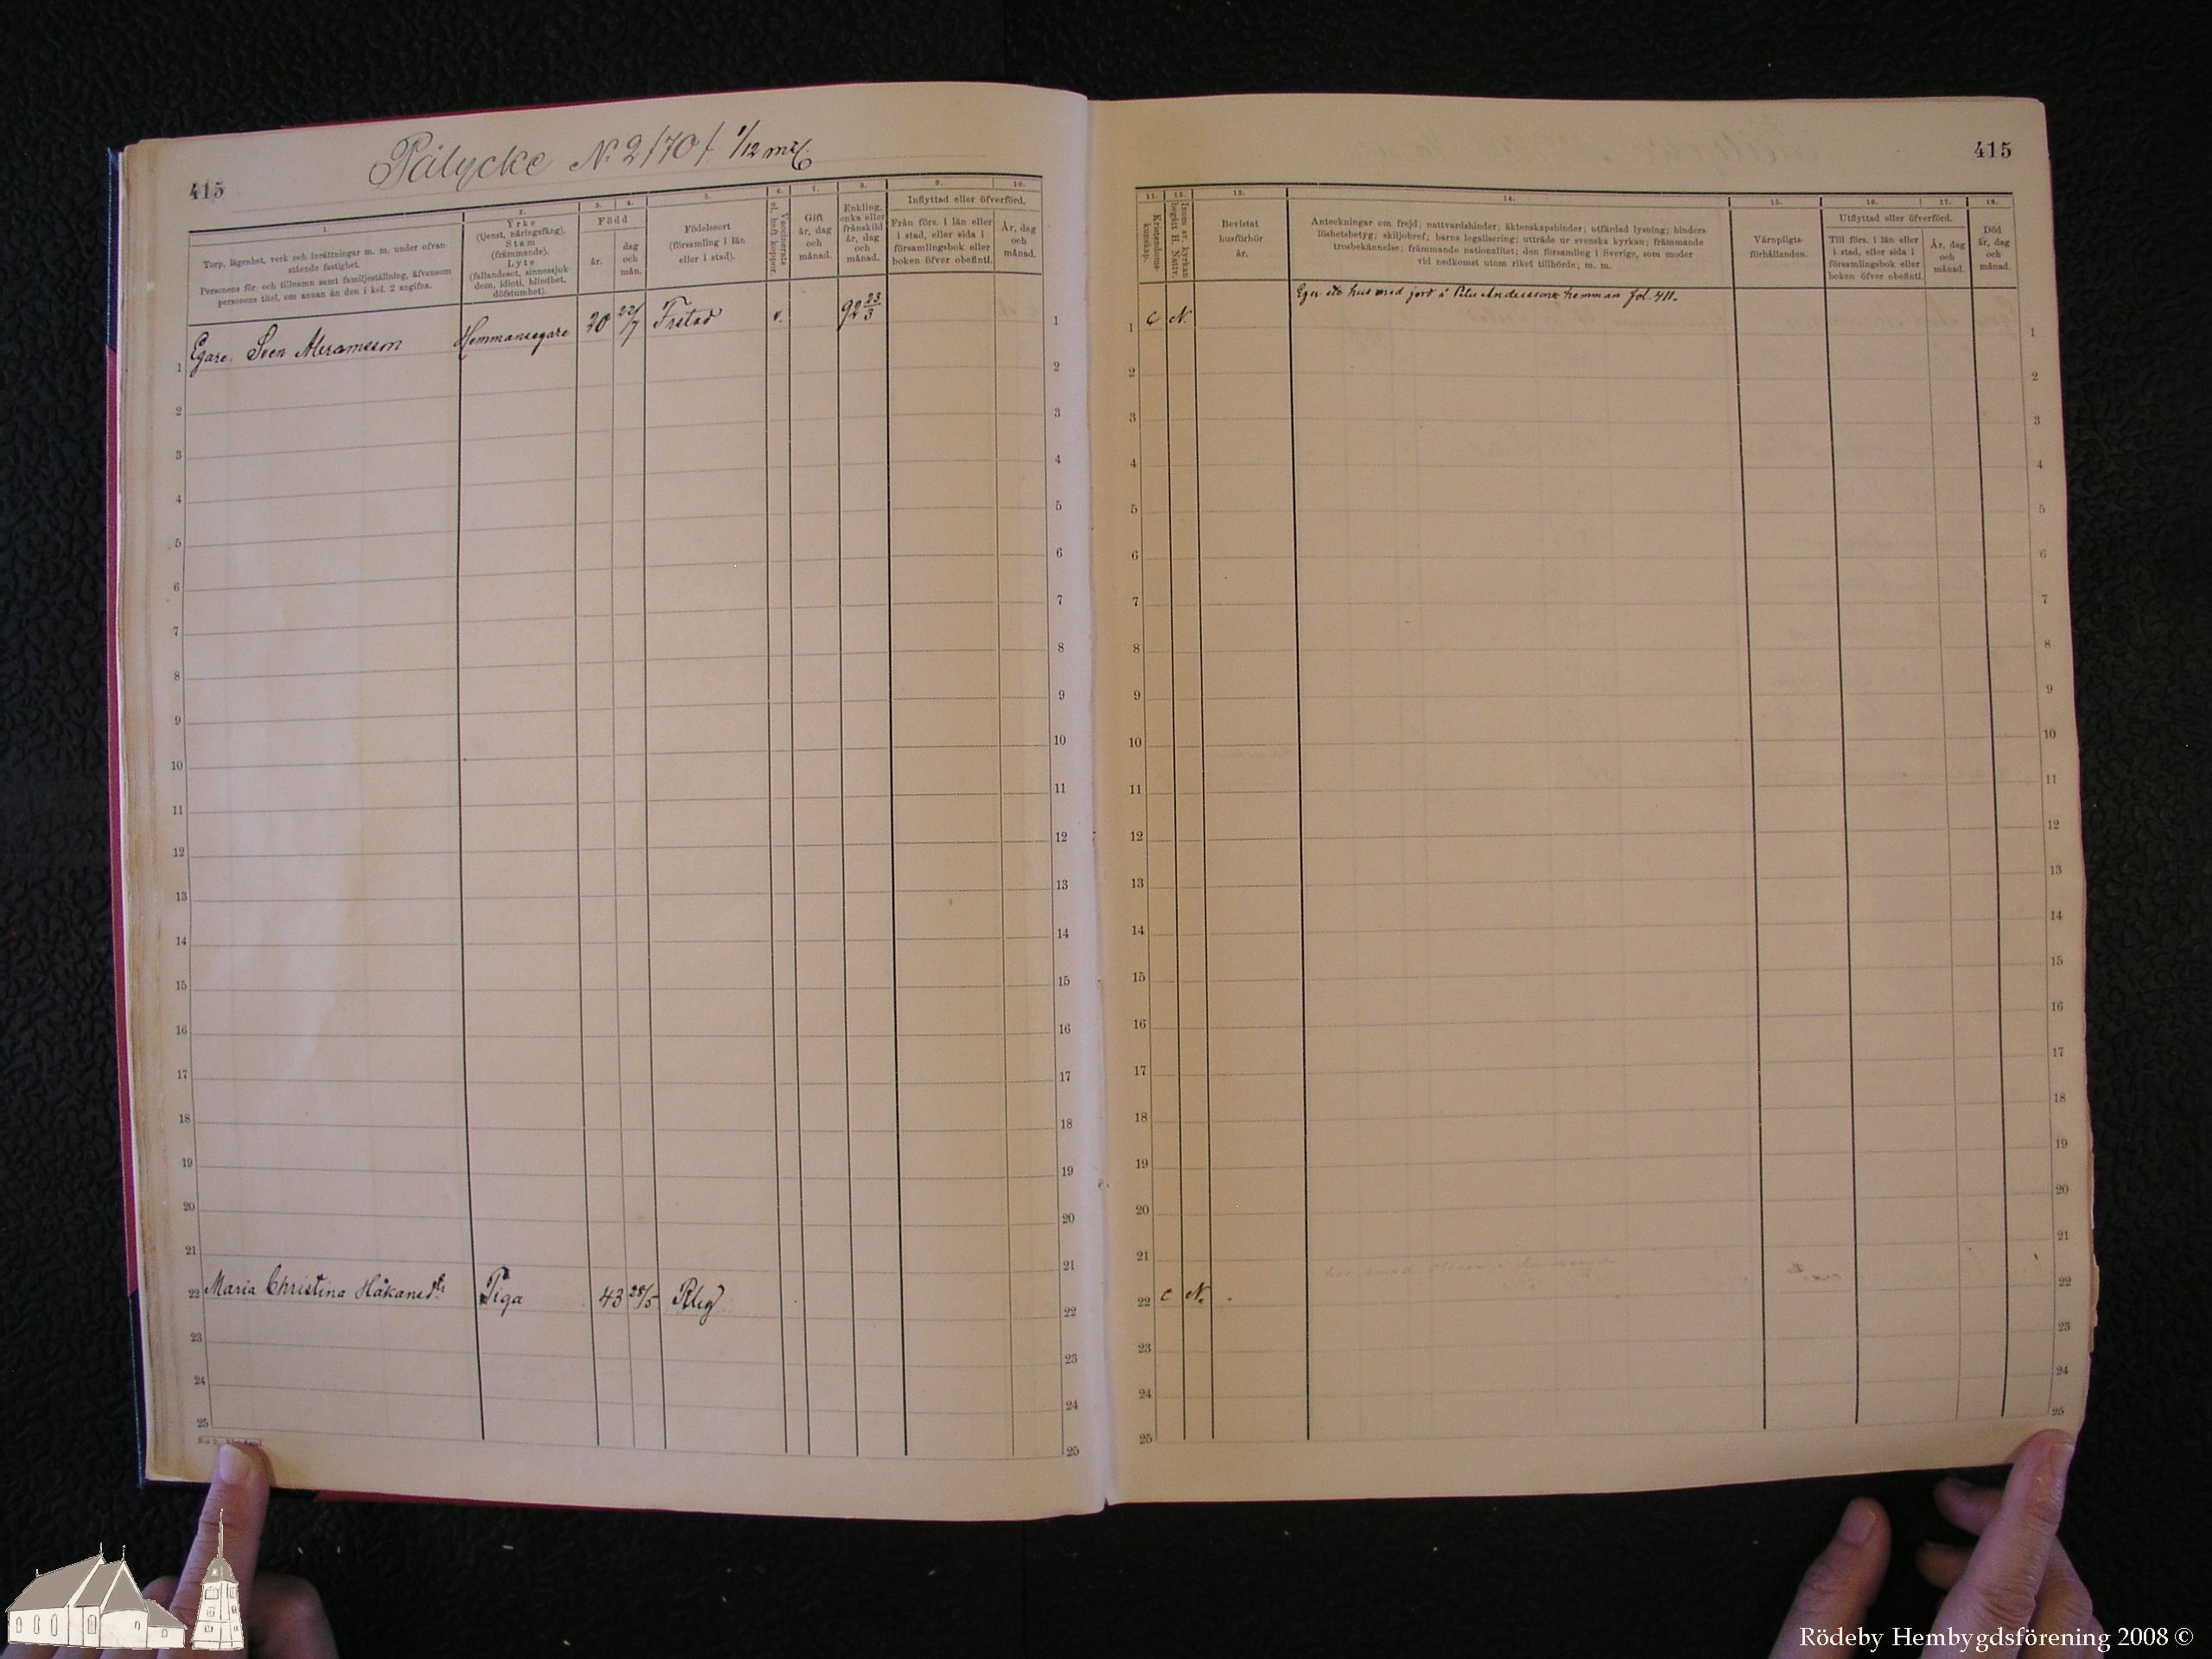 Pålycke No 2/70/. 1/12 mtl.
415
1.
2.
3.
4.
5.
6.
7.
8.
9.
10.
Torp, lägenhet, verk och inrättningar m. m. under ofvan-
stående fastighet.
Personens för- och tillnamn samt familjeställning, äfvensom
personens titel, om annan än den i kol. 2 angifna.
Yrke
(tjenst, näringsfång),
Stam
(främmande).
Lyte
(fallandesot, sinnessjuk-
dom, idioti, blindhet,
döfstumhet).
Född
år.
dag
och
mån.
Födelseort
(församling i län
eller i stad).
Vaccinerats
el. haft koppor.
Gift
år, dag
och
månad.
Enkling,
enka eller
frånskild
år, dag
och
månad.
Inflyttad eller öfverförd.
Från förs. i län eller
i stad, eller sida i
församlingsbok eller
boken öfver obefintl.
År, dag
och
månad.
Egare, Sven Abramsson Hemmansegare 20 22/7 Fristad v. 92 23/3
1
2
3
4
5
6
7
8
9
10
11
12
13
14
15
16
17
18
19
20
21
22 Maria Christina Håkansdtr Piga 43 28/5 Rby
23
24
25
415
11.
12.
13.
14.
15.
16.
17.
18.
Kristendoms-
kunskap.
Inom sv. kyrkan
begått H. Nattv.
Bevistat
husförhör
år.
Anteckningar om frejd; nattvardshinder; äktenskapshinder; utfärdad lysning; hinders-
löshetsbetyg; skiljobref; barns legalisering; utträde ur svenska kyrkan; främmande
trosbekännelse; främmande nationalitet; den församling i Sverige, som moder
vid nedkomst utom riket tillhörde; m. m.
Värnpligts-
förhållanden.
Utflyttad eller öfverförd.
Till förs. i län eller
i stad, eller sida i
församlingsbok eller
boken öfver obefintl.
År, dag
och
månad.
Död
år, dag
och
månad.
hus med jord i Peter Anderssons hemman fol. 411.
1 C N.
2
3
4
5
6
7
8
9
10
11
12
13
14
15
16
17
18
19
20
21
22 C N.
23
24
25
Rödeby Hembygdsförening 2008 ©